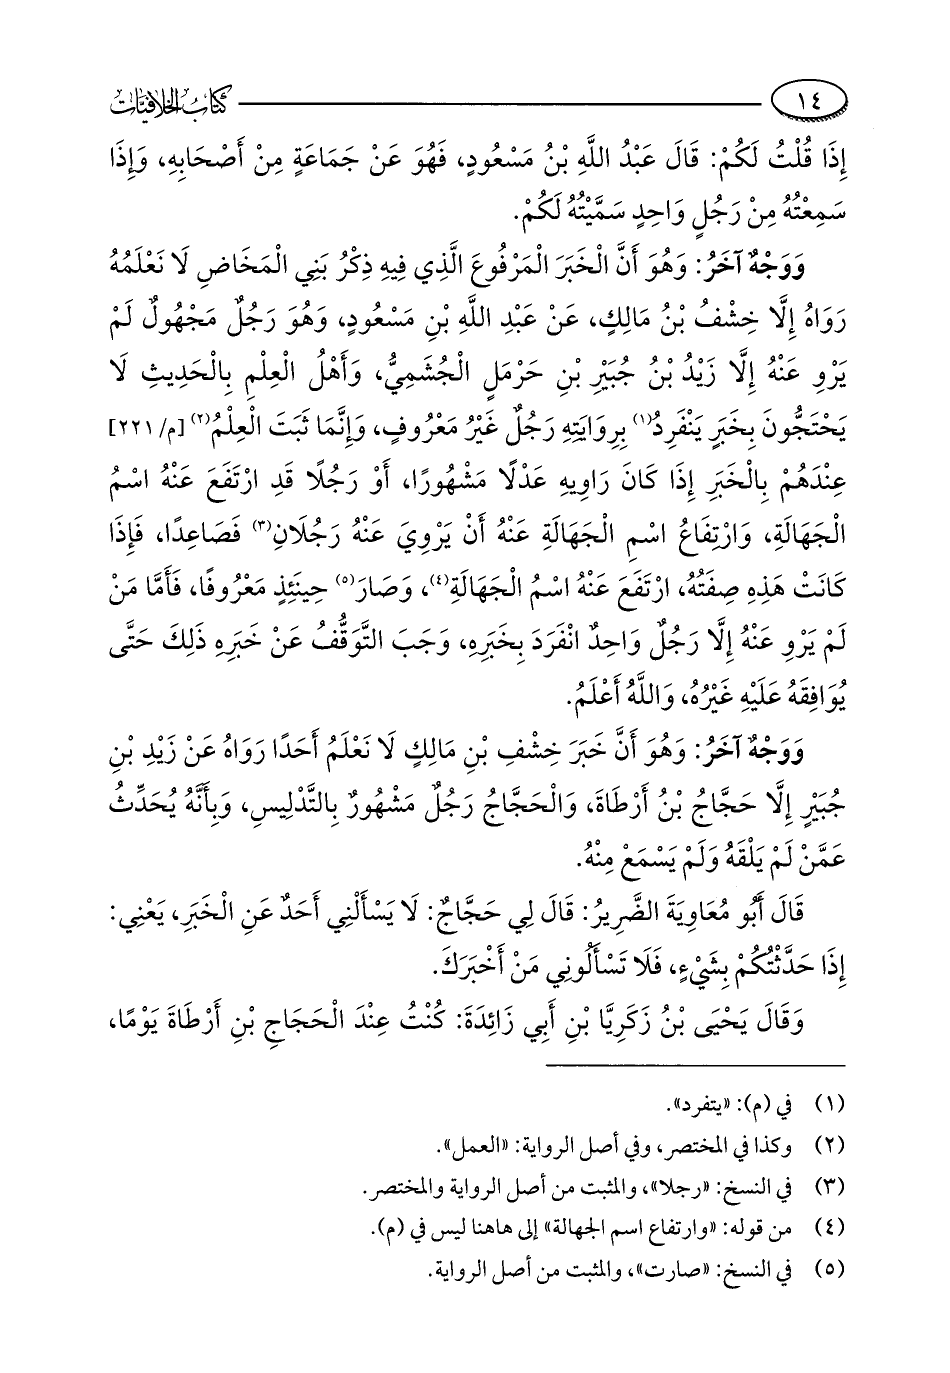 ١٤ كتاب الخلافيات
إِذَا قُلْتُ لَكُمْ: قَالَ عَبْدُ اللَّهِ بْنُ مَسْعُودٍ، فَهُوَ عَنْ جَمَاعَةٍ مِنْ أَصْحَابِهِ، وَإِذَا
سَمِعْتُهُ مِنْ رَجُلٍ وَاحِدٍ سَمَّيْتُهُ لَكُمْ.
وَوَجْهٌ آخَرُ: وَهُوَ أَنَّ الْخَبَرَ الْمَرْفُوعَ الَّذِي فِيهِ ذِكْرُ بَنِي الْمَخَاضِ لَا نَعْلَمُهُ
رَوَاهُ إِلَّا خِشْفُ بْنُ مَالِكٍ، عَنْ عَبْدِ اللَّهِ بْنِ مَسْعُودٍ، وَهُوَ رَجُلٌ مَجْهُولٌ لَمْ
يَرْوِ عَنْهُ إِلَّا زَيْدُ بْنُ جُبَيْرِ بْنِ حَرْمَلٍ الْجُشَمِيُّ، وَأَهْلُ الْعِلْمِ بِالْحَدِيثِ لَا
يَحْتَجُّونَ بِخَبَرٍ يَنْفَرِدُ(١) بِرِوَايَتِهِ رَجُلٌ غَيْرُ مَعْرُوفٍ، وَإِنَّمَا ثَبَتَ الْعِلْمُ(٢) [م/ ٢٢١]
عِنْدَهُمْ بِالْخَبَرِ إِذَا كَانَ رَاوِيهِ عَدْلًا مَشْهُورًا، أَوْ رَجُلًا قَدِ ارْتَفَعَ عَنْهُ اسْمُ
الْجَهَالَةِ، وَارْتِفَاعُ اسْمِ الْجَهَالَةِ عَنْهُ أَنْ يَرْوِيَ عَنْهُ رَجُلَانِ(٣) فَصَاعِدًا، فَإِذَا
كَانَتْ هَذِهِ صِفَتُهُ، ارْتَفَعَ عَنْهُ اسْمُ الْجَهَالَةِ(٤)، وَصَارَ(٥) حِينَئِذٍ مَعْرُوفًا، فَأَمَّا مَنْ
لَمْ يَرْوِ عَنْهُ إِلَّا رَجُلٌ وَاحِدٌ انْفَرَدَ بِخَبَرِهِ، وَجَبَ التَّوَقُّفُ عَنْ خَبَرِهِ ذَلِكَ حَتَّى
يُوَافِقَهُ عَلَيْهِ غَيْرُهُ، وَاللَّهُ أَعْلَمُ.
وَوَجْهٌ آخَرُ: وَهُوَ أَنَّ خَبَرَ خِشْفِ بْنِ مَالِكٍ لَا نَعْلَمُ أَحَدًا رَوَاهُ عَنْ زَيْدِ بْنِ
جُبَيْرٍ إِلَّا حَجَّاجُ بْنُ أَرْطَاةَ، وَالْحَجَّاجُ رَجُلٌ مَشْهُورٌ بِالتَّدْلِيسِ، وَبِأَنَّهُ يُحَدِّثُ
عَمَّنْ لَمْ يَلْقَهُ وَلَمْ يَسْمَعْ مِنْهُ.
قَالَ أَبُو مُعَاوِيَةَ الضَّرِيرُ: قَالَ لِي حَجَّاجٌ: لَا يَسْأَلْنِي أَحَدٌ عَنِ الْخَبَرِ، يَعْنِي:
إِذَا حَدَّثْتُكُمْ بِشَيْءٍ، فَلَا تَسْأَلُونِي مَنْ أَخْبَرَكَ.
وَقَالَ يَحْيَى بْنُ زَكَرِيَّا بْنِ أَبِي زَائِدَةَ: كُنْتُ عِنْدَ الْحَجَاجِ بْنِ أَرْطَاةَ يَوْمًا،
(١) في (م): «يتفرد».
(٢) وكذا في المختصر، وفي أصل الرواية: «العمل».
(٣) في النسخ: «رجلا»، والمثبت من أصل الرواية والمختصر.
(٤) من قوله: «وارتفاع اسم الجهالة» إلى هاهنا ليس في (م).
(٥) في النسخ: «صارت»، والمثبت من أصل الرواية.